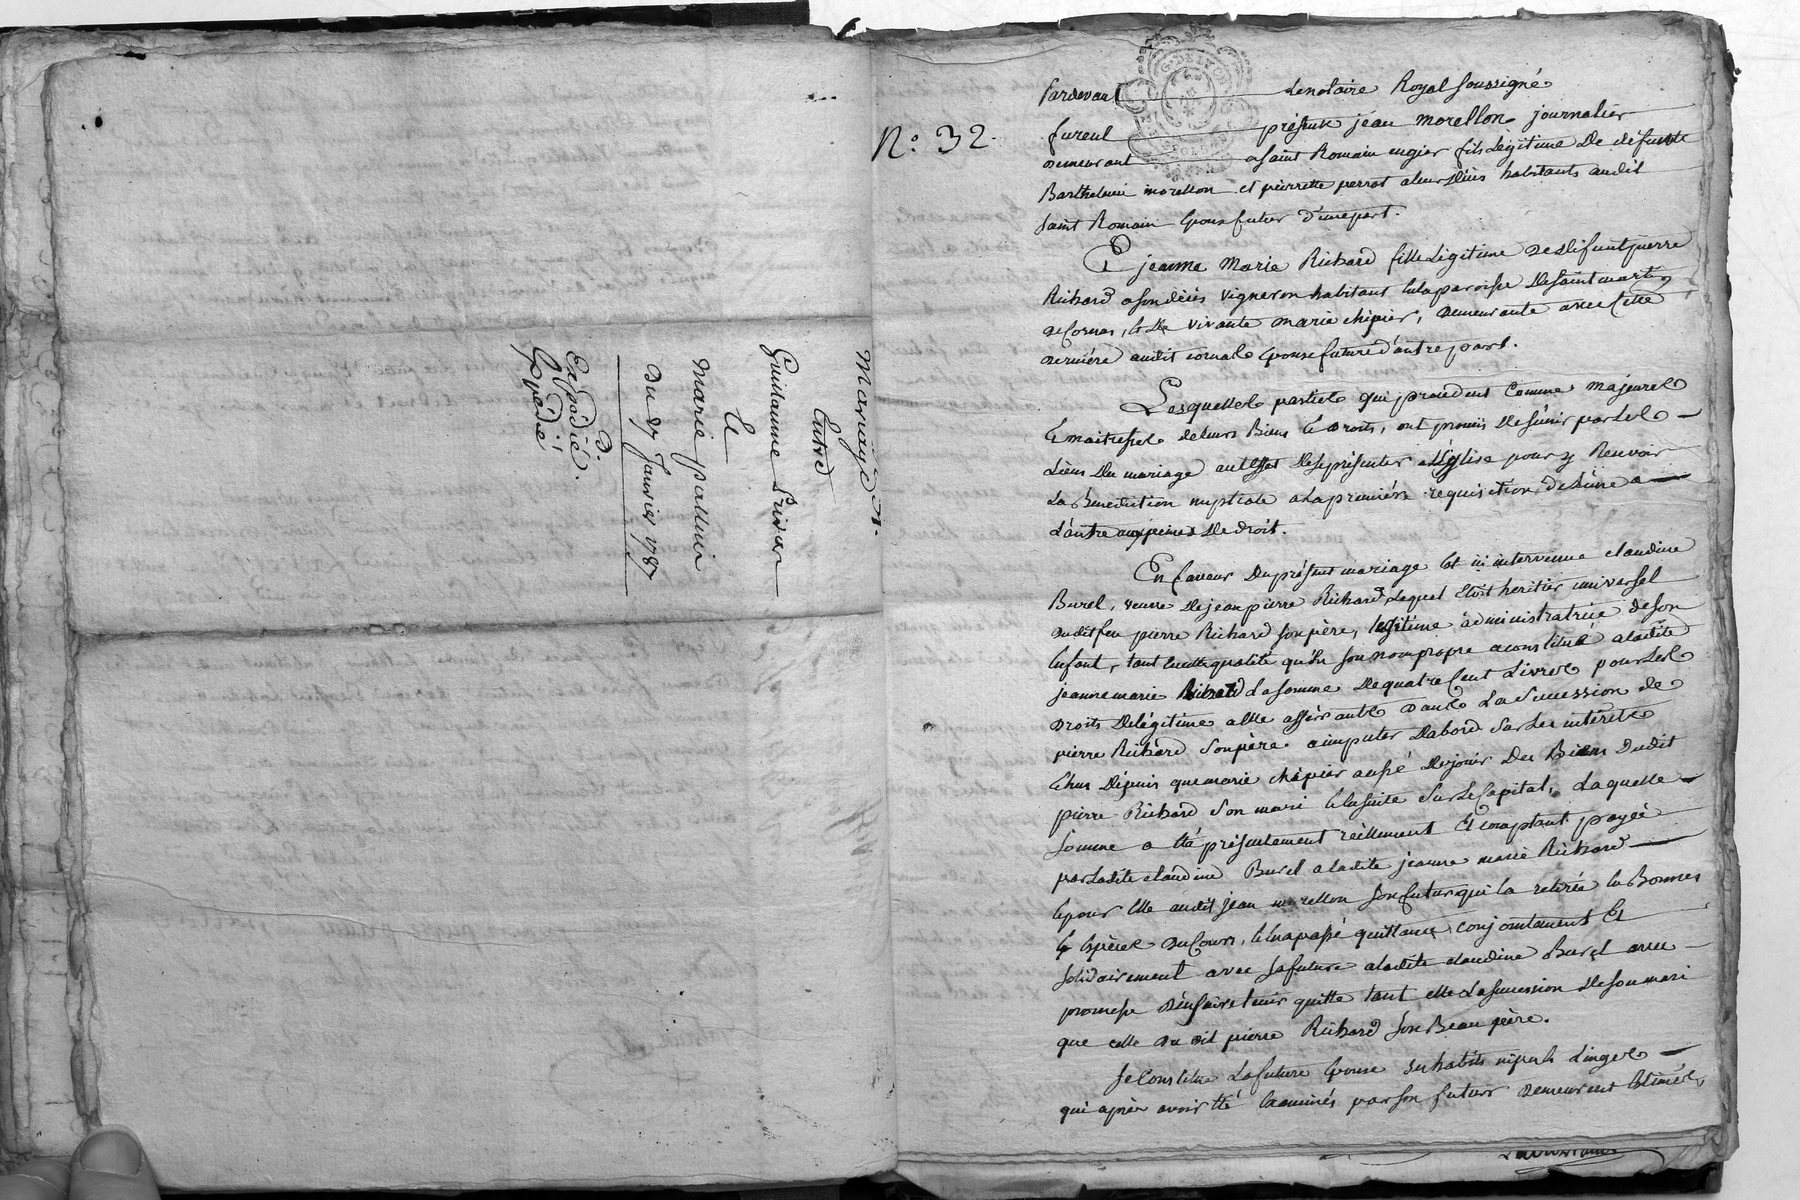 Marriage
Entre
Guillaume
Et
Marie
Du 27 Janvier 1787
Expédié
Expédié
N.° 32.
Pardevant le notaire Royal soussigné
furent présents jean morellon journalier
demeurant a saint Romain fils Légitime De défunts
Barthelemi morellon et pierrette perrot a leur décès habitants audit
saint Romain Epoux futur d'une part.
Et jeanne Marie Richard fille Légitime De défunt pierre
Richard a son décès vigneron habitant en la paroisse De saint martin
De Cornas, & De vivante marie chipier, Demeurante avec Cette
derniére audit cornas Epouse future d'autre part.
Lesquelles parties qui procedent Comme majeures
& maitresses de leurs Biens & Droits, ont promis De s'unir par Les
Liens Du mariage au Effet De se présenter a L'église pour y Recevoir
La Benediction nuptiale a la premiére requisition De L'une a
L'autre aux peines De droit.
En faveur Du présent mariage Est ici intervenue claudine
Burel, veuve De jean pierre Richard Lequel Etoit heritier universel
Dudit feu pierre Richard son père, legitime administratrice de son
Enfant, tant en cette qualité qu'En son nom propre a constitué a ladite
jeanne marie Richard La somme De quatre Cent Livres pour Les
Droits De légitime a Elle afférants Dans La succession de
pierre Richard son père a imputer Dabord Sur Les intérêts
Echus Depuis que marie chipier a cessé De jouir Des Biens Dudit
pierre Richard son mari & Ensuite Sur Le Capital, Laquelle
somme a Eté présentement réellement Et comptant payée
par Ladite claudine Burel a ladite jeanne marie Richard
& pour Elle audit jean morellon son futur qui l'a retirée En Bonnes
Espèces Du Cours, & En a passé quittance conjointement Et
solidairement avec sa future a ladite claudine Burel avec
promesse D'En faire tenir quitte tant elle La succession De son mari
que celle Du dit pierre Richard son Beau père.
Se Constitue La future Epouse Ses habits nipes & Linges
qui après avoir Eté Examinés par son futur Demeurent Estimés